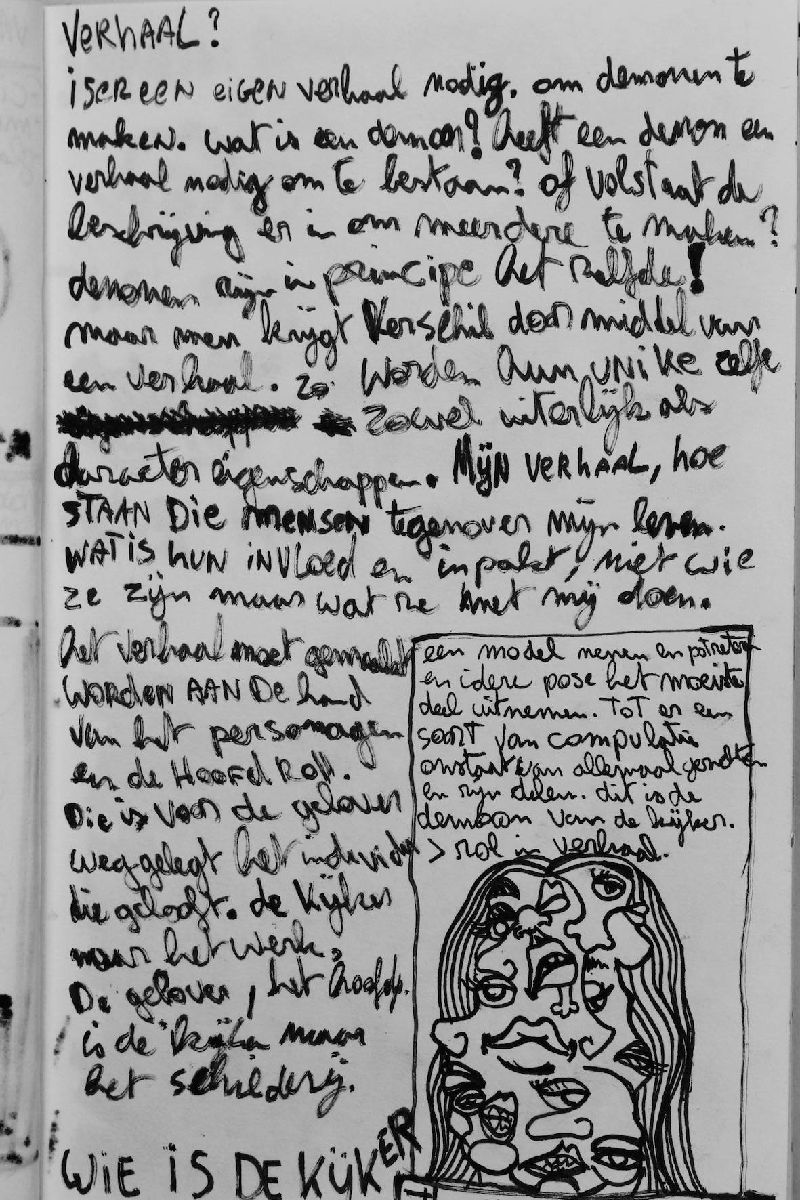 VERHAAL?
IS ER EEN EIGEN verhaal nodig. om demonen te
maken. wat is een demoon? heeft een demon een
verhaal nodig om te bestaan? of volstaat de
beschrijving er in om meerdere te maken?
demonen zijn in principe het zelfde!
maar men krijgt Verschil door middel van
een verhaal. zo worden hun UNIKE zelfe
zowel uiterlijk als
caracter eigenschappen. MIJN VERHAAL, hoe
STAAN DIE MENSEN tegenover mijn leven.
WAT IS HUN INVLOED en inpakt, niet wie
ze zijn maar wat ze met mij doen.
het verhaal moet gemaakt
WORDEN AAN De hand
van het personagen
en de HOOFD ROLL.
Die is voor de gelover
weggelegt het individu
die gelooft. de kijker
naar het werk.
De gelover, het hoofdp.
is de kijker naar
het schilderij.
WIE IS DE KIJKER
een model nemen en potreten
en idere pose het moeiste
deel uitnemen. TOT er een
soort van compulatie
onstaat van allemaal gezichten
en zijn delen. dit is de
demoon van de kijker.
> rol in verhaal.